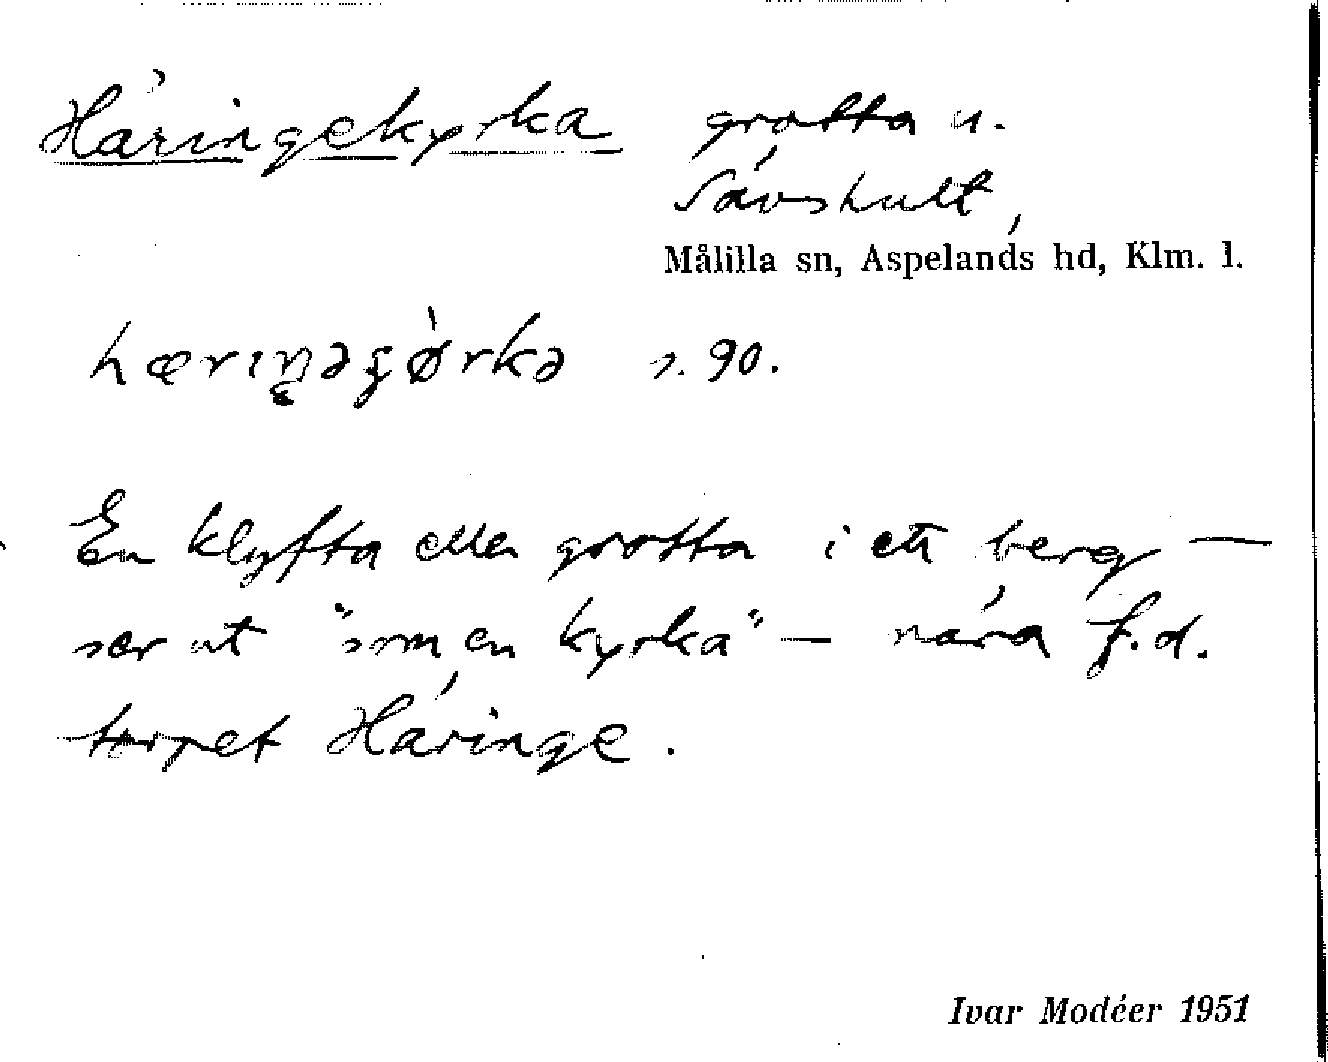 Häringekyrka grotta u.
Sävshult,
Målilla sn, Aspelands hd, Klm. l.
hærıŋəɕø̀rkə s. 90.
En klyfta eller grotta i ett berg —
ser ut "som en kyrka" — nära f.d.
torpet Häringe.
Ivar Modéer 1951